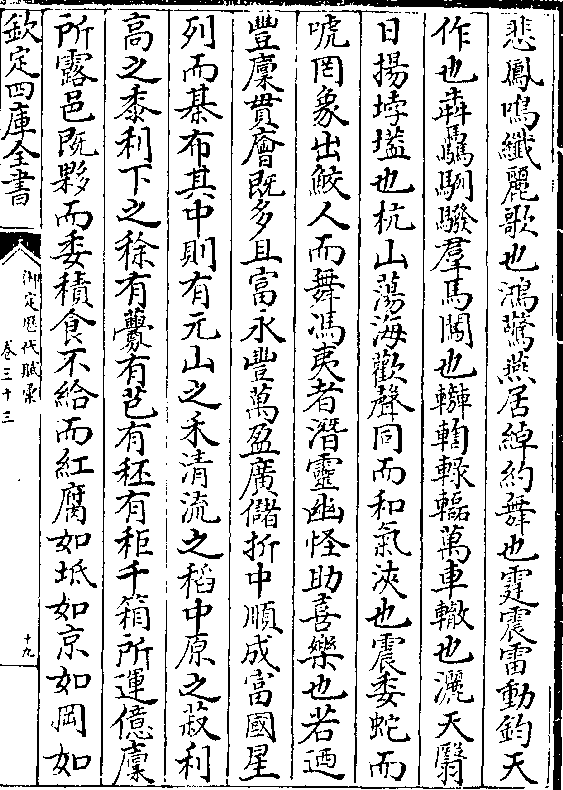 悲鳳鳴纖麗歌也鴻驚燕居綽約舞也霆震雷動鈞天
作也犇驫駟驋羣馬闐也轣輷轇轀萬車轍也灑天翳
日揚埲壒也杭山蕩海歡聲同而和氣浹也震委蛇而
唬罔象出鮫人而舞馮夷者潛靈幽怪助喜樂也若迺
豐廩貫廥既多且富永豐萬盈廣儲折中順成富國星
列而棊布其中則有元山之禾清流之稻中原之菽利
高之黍利下之稌有虋有芑有秠有秬千箱所運億廩
所露邑既夥而委積食不給而紅腐如坻如京如岡如
欽定四庫全書
御定歷代賦彙
卷三十三
十九